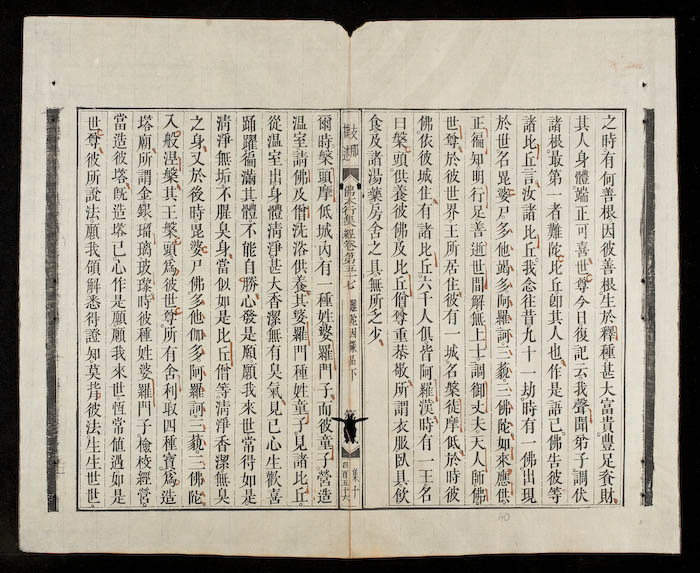 之時有何善根因彼善根生於釋種甚大富貴豊足資財
其人身體端正可喜世尊今日復記云我聲聞弟子調伏
諸根最第一者難陀比丘卽其人也作是語已佛告彼等
諸比丘言汝諸比丘我念往昔九十一劫時有一佛出現
於世名毘婆尸多他竭多阿羅訶三藐三佛陀如來應供
正徧知明行足善逝世間解無上士調御丈夫天人師佛
世尊於彼世界王所居住彼有一城名槃徒摩低於時彼
佛依彼城住有諸比丘六千人俱皆阿羅漢時有一王名
曰槃頭供養彼佛及比丘僧尊重恭敬所謂衣服臥具飲
食及諸湯藥房舍之具無所乏少
支那撰述
佛本行集經卷第五十七 難陀因緣品下
集十
四百五十六
爾時槃頭摩低城內有一種姓婆羅門子而彼童子營造
溫室請佛及僧洗浴供養其婆羅門種姓童子見諸比丘
從溫室出身體清淨甚大香潔無有臭氣見已心生歡喜
踊躍徧滿其體不能自勝心發是願願我來世常得如是
清淨無垢不腥臭身當似如是比丘僧等清淨香潔無臭
之身又於後時毘婆尸佛多他伽多阿羅訶三藐三佛陀
入般涅槃其王槃頭爲彼世尊所有舍利取四種寶爲造
塔廟所謂金銀瑠璃玻瓈時彼種姓婆羅門子檢校經營
當造彼塔旣造塔已心作是願願我來世恆常値遇如是
世尊彼所說法願我領解悉得證知莫背彼法生生世世
40